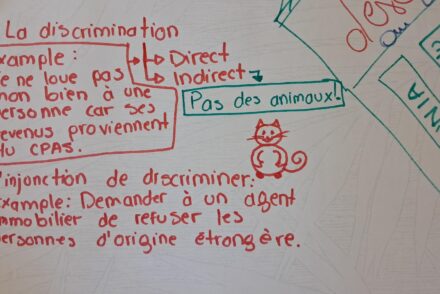 La discrimination
Direct
Indirect
xemple :
e ne loue pas
mon bien à une
ersonne car ses
evenus proviennent
du CPAS.
Pas des animaux!
'injonction de discriminer:
xemple: Demander à un agent
mmobilier de refuser les
ersonnes d'origine étrangère.
NIA